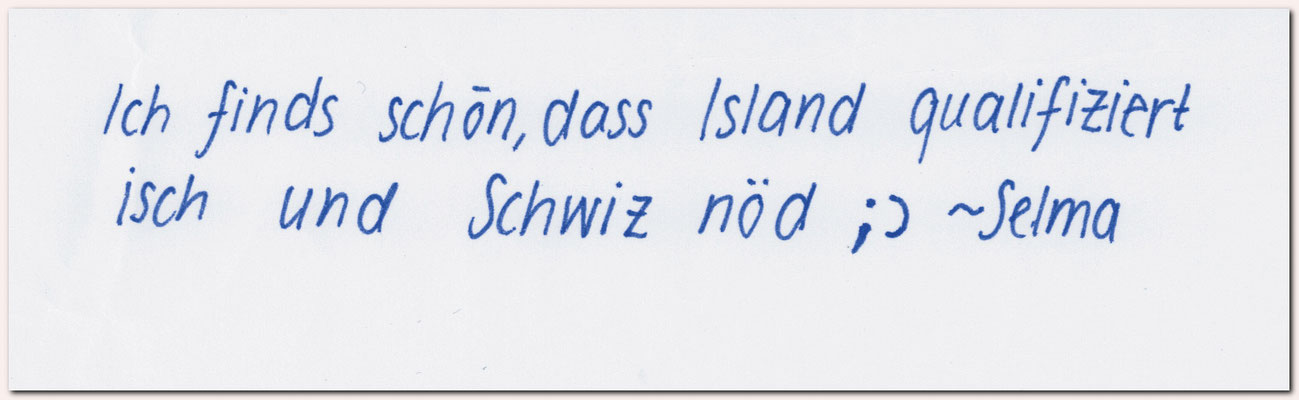 Ich finds schön, dass Island qualifiziert
isch und Schwiz nöd ;) ~Selma